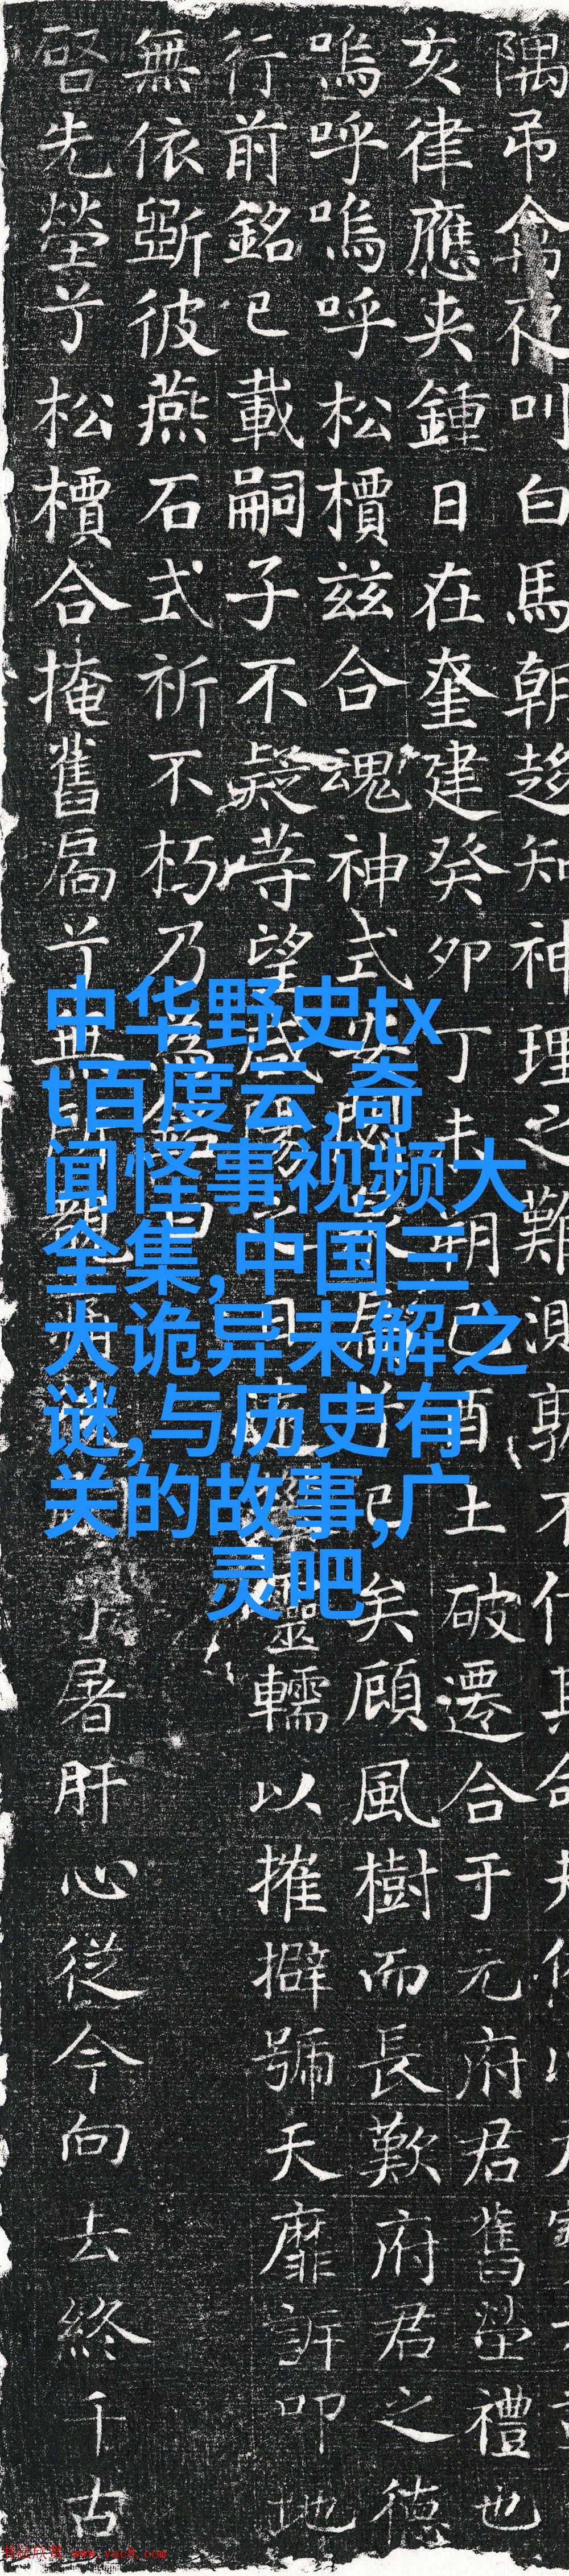 隅吊禽夜叫白馬朝趍知神理之難測
亥律應夹鍾日在奎建癸卯丁未朔己酉土破遷合于元府君舊塋禮也
嗚呼嗚呼松檟兹合魂神式安已矣顧風樹而長歎府君之德
行前銘已載嗣子不疑等望靈轜以摧擗號天靡訴叩地
無依斵彼燕石式祈不朽乃為銘曰
啓先塋兮松檟合掩舊扃兮無屠肝心從今向去終千古
中华野史tx
t百度云,奇
闻怪事视频大
全集,中国三
大诡异未解之
谜,与历史有
关的故事,广
灵吧
书法欣赏 www.yac8.com